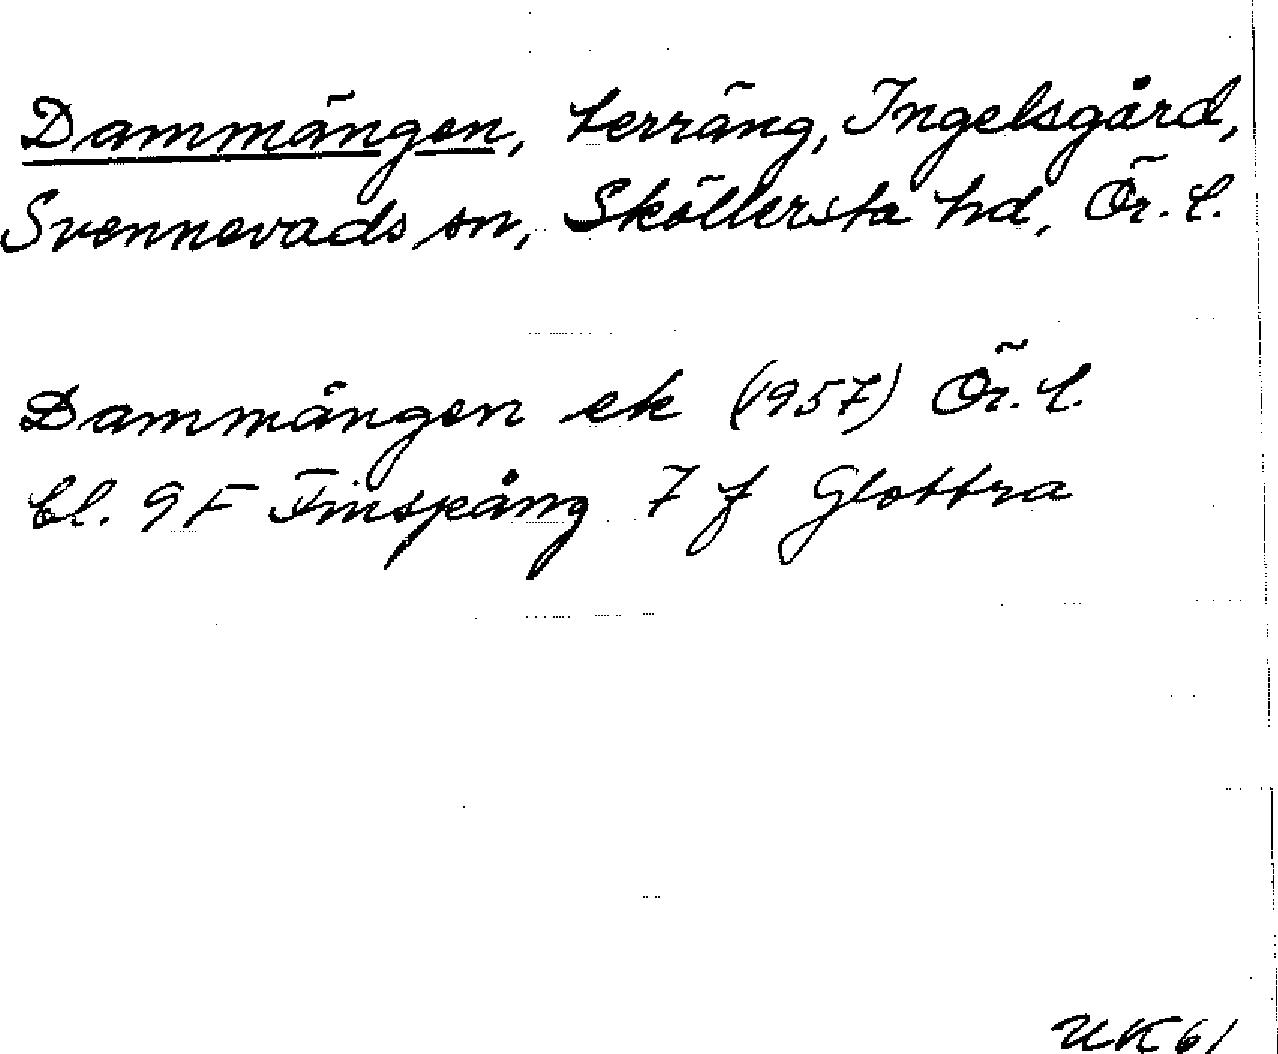 Dammängen, terräng, Ingelsgård,
Svennevads sn, Sköllersta hd, Ör. l.
Dammängen ek (1957) Ör. l.
bl. 9 F Finspång 7 f Glottra
UK 61